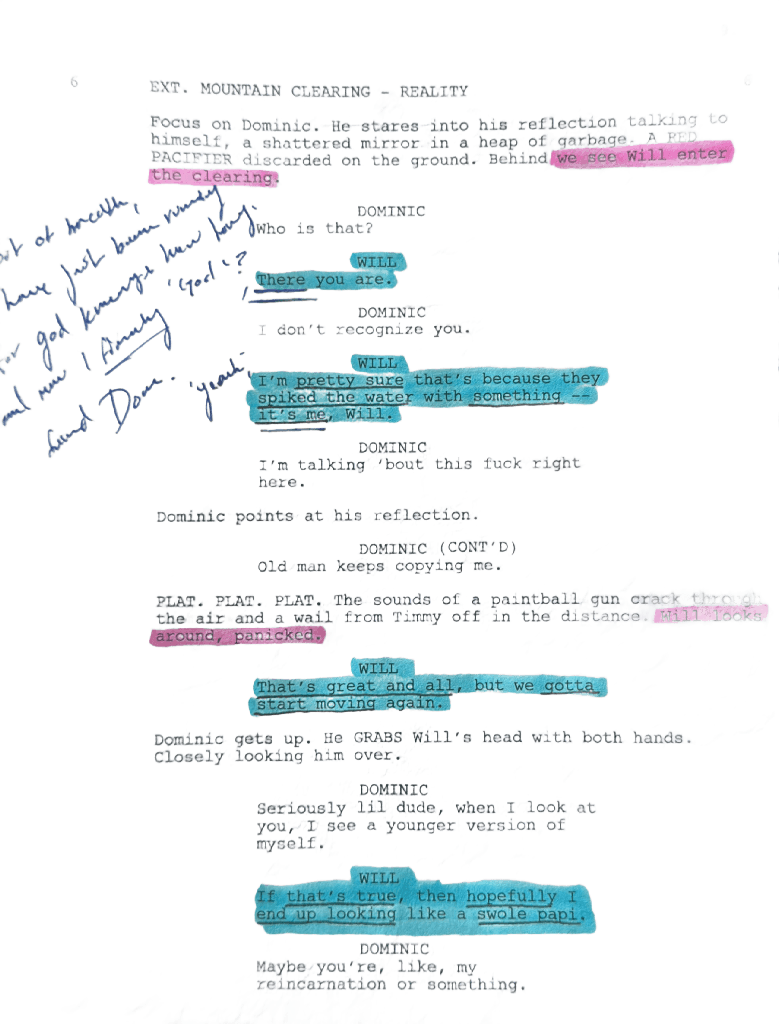 6
EXT. MOUNTAIN CLEARING - REALITY
Focus on Dominic. He stares into his reflection talking to
himself, a shattered mirror in a heap of garbage. A RED
PACIFIER discarded on the ground. Behind we see Will enter
the clearing.
out of breath,
have just been running
for god knows how long.
and now I finally
found Dom.
'God'?
'yeah'
DOMINIC
Who is that?
WILL
There you are.
DOMINIC
I don't recognize you.
WILL
I'm pretty sure that's because they
spiked the water with something --
it's me, Will.
DOMINIC
I'm talking 'bout this fuck right
here.
Dominic points at his reflection.
DOMINIC (CONT'D)
Old man keeps copying me.
PLAT. PLAT. PLAT. The sounds of a paintball gun crack through
the air and a wail from Timmy off in the distance. Will looks
around, panicked.
WILL
That's great and all, but we gotta
start moving again.
Dominic gets up. He GRABS Will's head with both hands.
Closely looking him over.
DOMINIC
Seriously lil dude, when I look at
you, I see a younger version of
myself.
WILL
If that's true, then hopefully I
end up looking like a swole papi.
DOMINIC
Maybe you're, like, my
reincarnation or something.